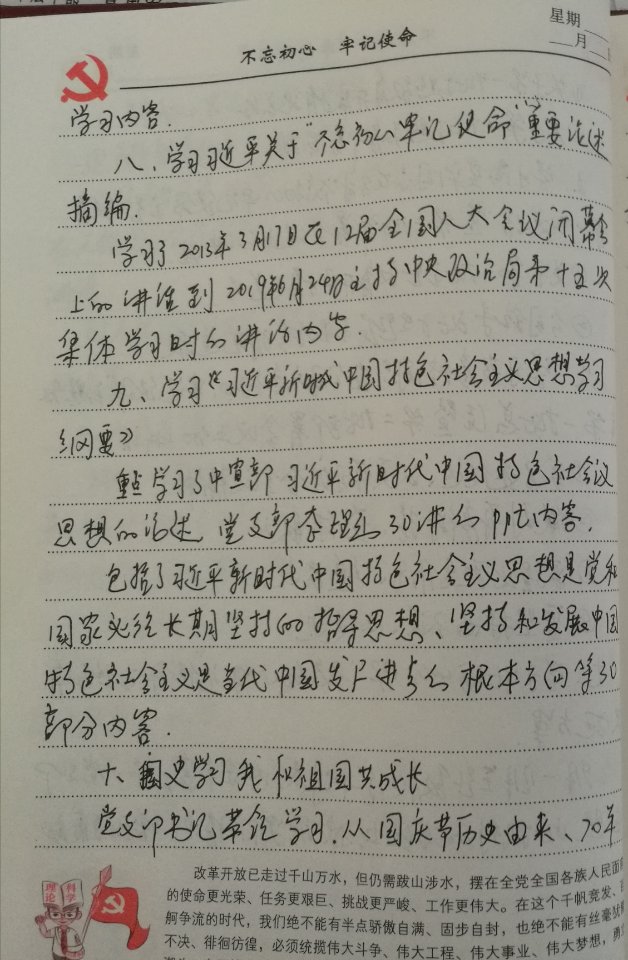 星期
月
不忘初心 牢记使命
学习内容.
八、学习习近平关于"不忘初心牢记使命"重要论述
摘编.
学习了2013年3月17日在12届全国人大会议闭幕会
上的讲话到2019年6月24日主持中央政治局第十五次
集体学习时的讲话内容.
九、学习《习近平新时代中国特色社会主义思想学习
纲要》
重点学习了中宣部习近平新时代中国特色社会议
思想的论述 党支部整理的30讲的ppt内容.
包括了习近平新时代中国特色社会主义思想是党和
国家必须长期坚持的指导思想、坚持和发展中国
特色社会主义是当代中国发展进步的根本方向等30
部分内容.
十、国史学习 我和祖国共成长
党支部书记带领学习.从国庆节历史由来、70年
理论
科学
改革开放已走过千山万水，但仍需跋山涉水，摆在全党全国各族人民面前
的使命更光荣、任务更艰巨、挑战更严峻、工作更伟大。在这个千帆竞发、百
舸争流的时代，我们绝不能有半点骄傲自满、固步自封，也绝不能有丝毫犹豫
不决、徘徊彷徨，必须统揽伟大斗争、伟大工程、伟大事业、伟大梦想，勇立